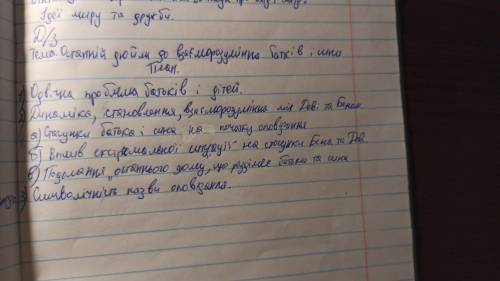 Ідеї миру та дружби.
Д/з
Тема: Останній дюйм до взаєморозуміння батька і сина
План.
1) Одвічна проблема батьків і дітей.
2) Динаміка, становлення, взаєморозуміння між Деві та Беном
а) Стосунки батька і сина на початку оповідання
б) Вплив екстремальної ситуації на стосунки Бена та Деві
в) Подолання „останнього дюйму, що розділяє батька та сина
3) Символічність назви оповідання.